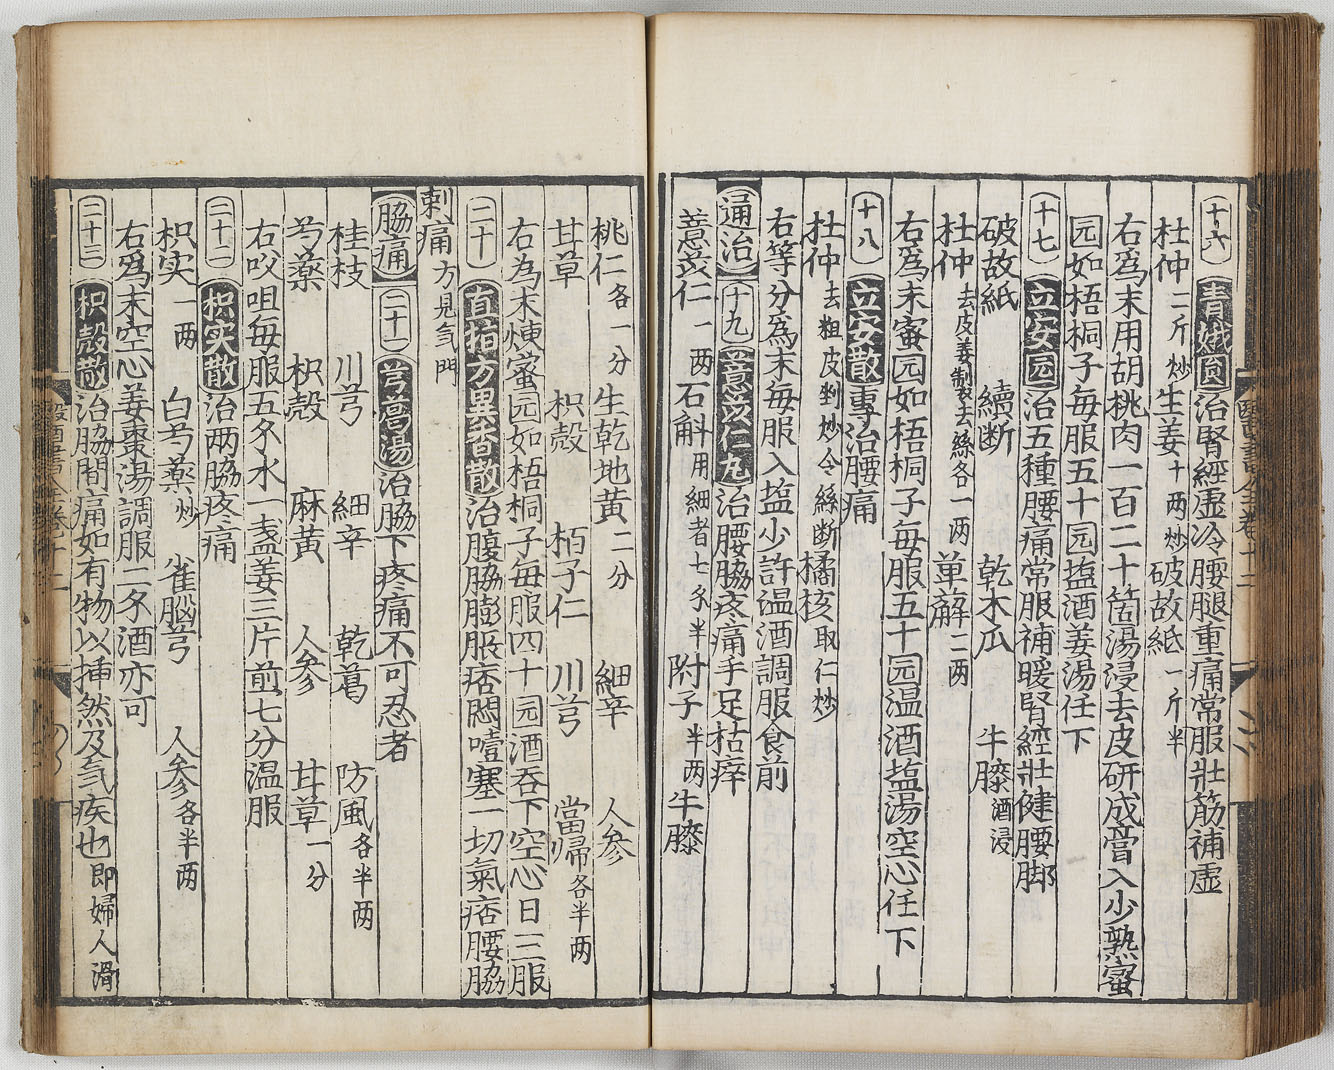 十六 青娥圓 治腎經虛冷腰腿重痛常服壯筋補虛
杜仲一斤炒 生姜十两炒 破故紙一斤半
右爲末用胡桃肉一百二十箇湯浸去皮研成膏入少熟蜜
园如梧桐子每服五十园塩酒姜湯任下
十七 立安园 治五種腰痛常服補暖腎經壯健腰脚
破故紙 續断 乾木瓜 牛膝酒浸
杜仲去皮姜制炒去絲各一两 萆薢二两
右爲末蜜园如梧桐子每服五十园温酒塩湯空心任下
十八 立安散 專治腰痛
杜仲去粗皮剉炒令絲断 橘核取仁炒
右等分爲末每服入塩少許温酒調服食前
通治 十九 薏苡仁丸 治腰脇疼痛手足枯痒
薏苡仁一两 石斛用細者七分半 附子半两 牛膝
桃仁各一分 生乾地黄二分 細辛 人參
甘草 枳殻 栢子仁 川芎 當歸各半两
右为末煉蜜园如梧桐子每服四十园酒吞下空心日三服
二十 直指方異香散 治腹脇膨脹痞悶噎塞一切氣痞腰脇
刺痛方見気門
脇痛 二十一 芎葛湯 治脇下疼痛不可忍者
桂枝 川芎 細辛 乾葛 防風各半两
芍藥 枳殻 麻黄 人參 甘草一分
右㕮咀每服五分水一盞姜三片前七分温服
二十二 枳实散 治两脇疼痛
枳实一两 白芍藥炒 雀脳芎 人參各半两
右爲末空心姜棗湯調服二分酒亦可
二十三 枳殻散 治脇間痛如有物以揷然及気疾也即婦人滑